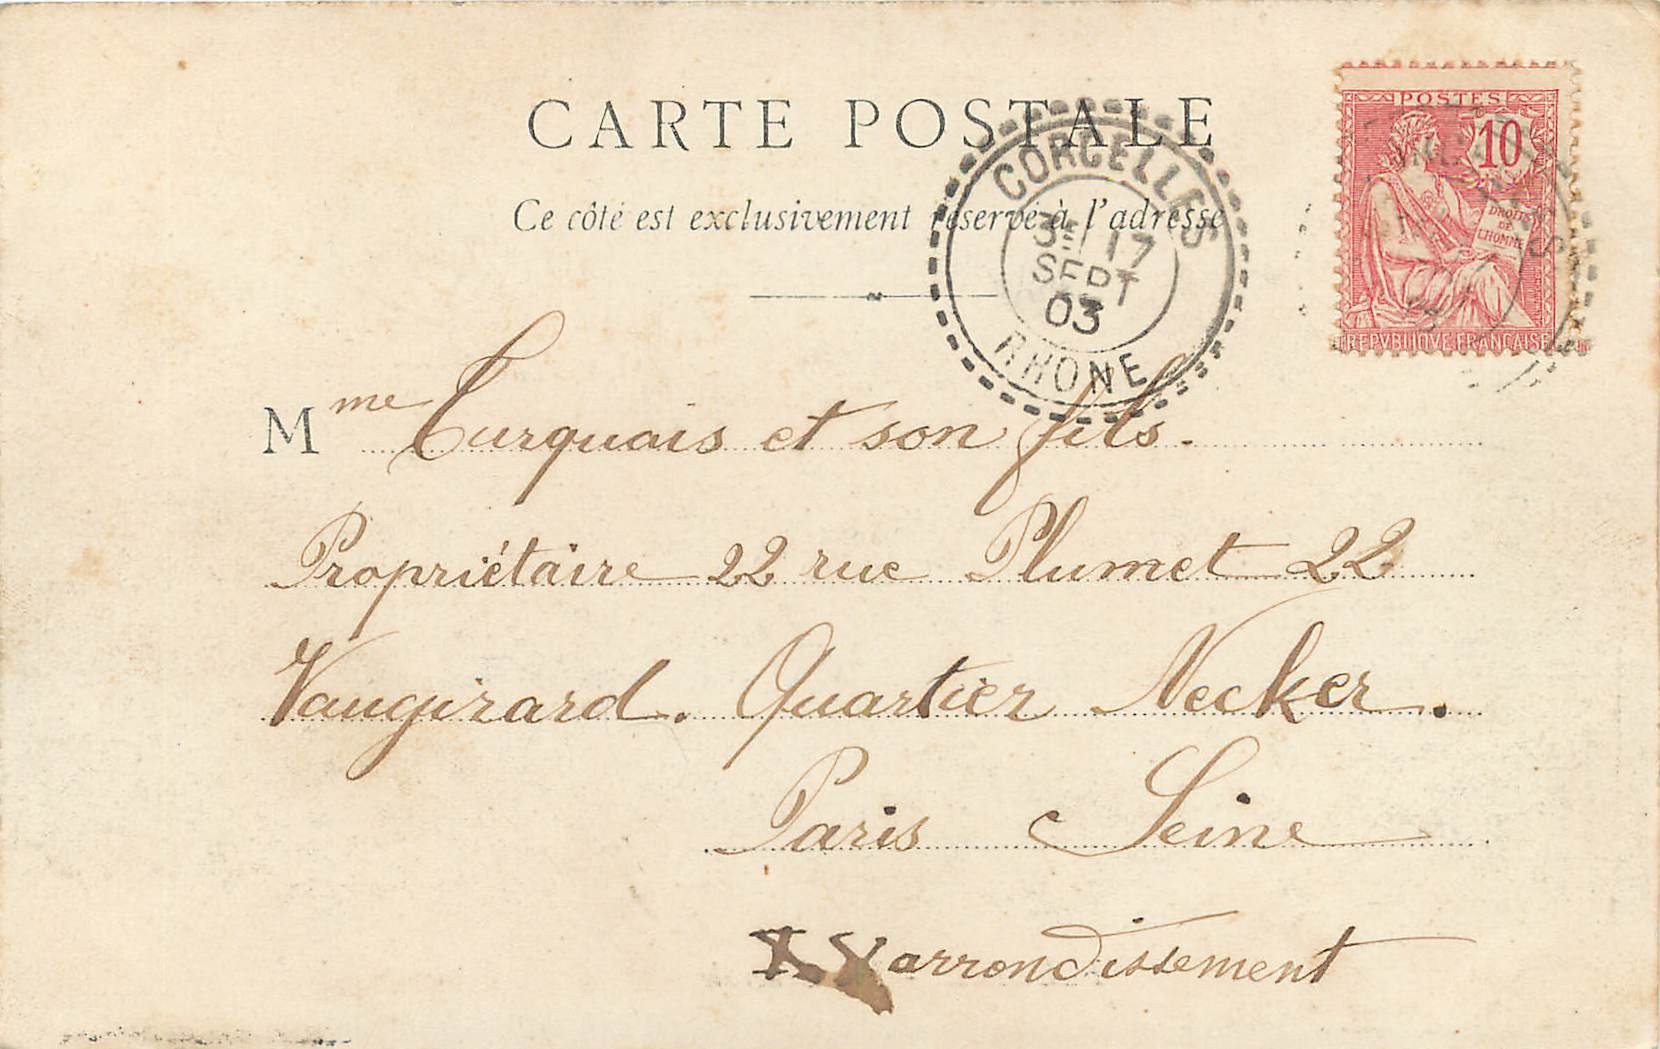 CARTE POSTALE
Ce côté est exclusivement réservé à l'adresse
POSTES
10
DROITS
DE
L'HOMME
REPVBLIQVE FRANCAISE
CORCELLES
3E / 17
SEPT
03
RHONE
Mme Turquais et son fils.
Propriétaire 22 rue Plumet 22
Vaugirard. Quartier Necker.
Paris Seine
XV arrondissement